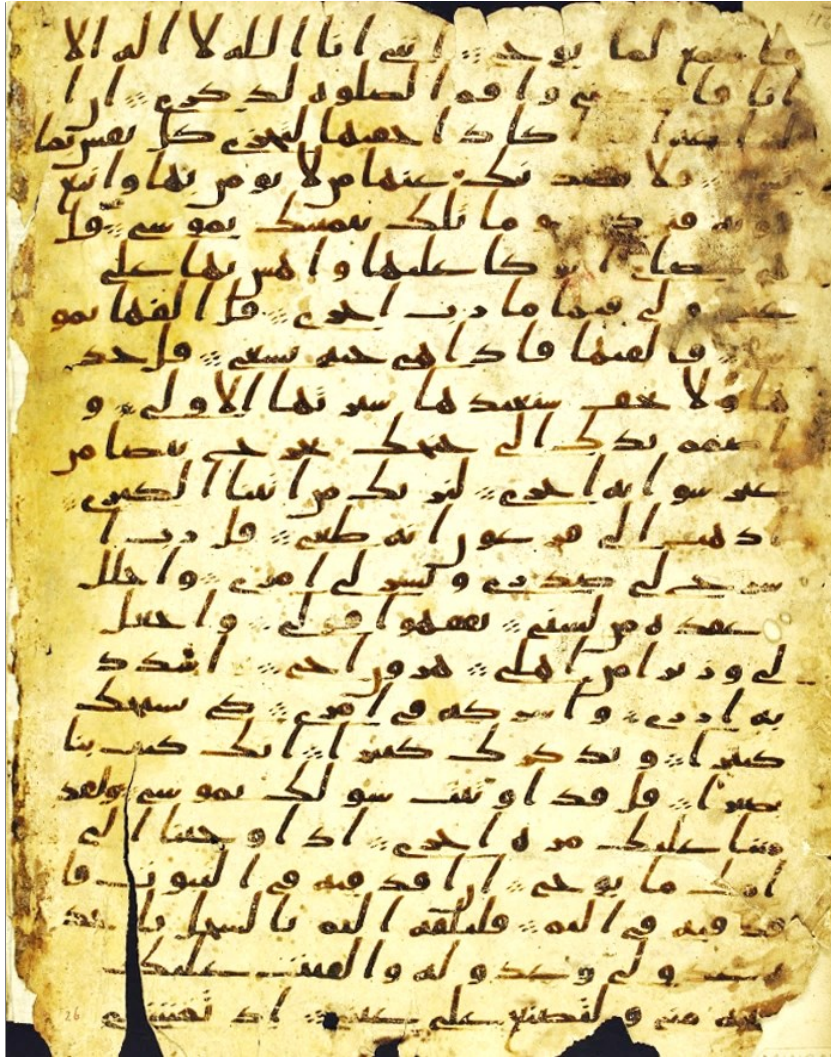 فاستمع لما يوحى انني انا الله لا اله الا
انا فاعبدني واقم الصلوه لذكري ان ا
لساعه اكاد اخفيها لتجزى كل نفس بما
تسعى فلا يصدنك عنها من لا يومن بها واتبع
هويه فتردى وما تلك بيمينك يموسى قل
هي عصاي اتوكا عليها واهش بها على
غنمي ولي فيها مارب اخرى قل القها يمو
سى فالقيها فاذا هي حيه تسعى قل خذ
ها ولا تخف سنعيدها سيرتها الاولى و
اضمم يدك الى جنحك تخرج بيضا من
غير سوا ايه اخرى لنريك من ايتنا الكبرى
اذهب الى فرعون انه طغى قل رب ا
شرح لي صدري ويسر لي امري واحلل
عقده من لسني يفقهوا قولي واجعل
لي وزيرا من اهلي هرون اخي اشدد
به ازري واشركه في امري كي نسبحك
كثيرا ونذكرك كثيرا انك كنت بنا
بصيرا قل قد اوتيت سولك يموسى ولقد
مننا عليك مره اخرى اذ اوحينا الى
امك ما يوحى ان اقذفيه في التبوت فا
قذفيه في اليم فليلقه اليم بالسحل ياخذ
ه عدو لي وعدو له والقيت عليك
محبه مني ولتصنع على عيني اذ تمشي
26